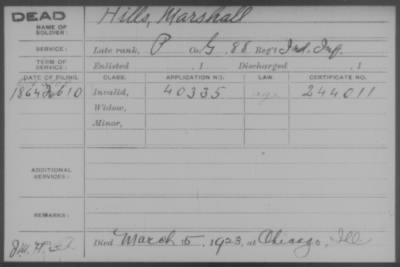 DEAD Hills, Marshall
NAME OF SOLDIER:
SERVICE: Late rank, P Co. G, 88 Reg't Ind. Inf.
TERM OF SERVICE: Enlisted , 1 Discharged , 1
DATE OF FILING. CLASS. APPLICATION NO. LAW. CERTIFICATE NO.
1864 Invalid, 40335 244011
Widow,
Minor,
ADDITIONAL SERVICES:
REMARKS:
Died March 5, 1923, at Chicago, Ill